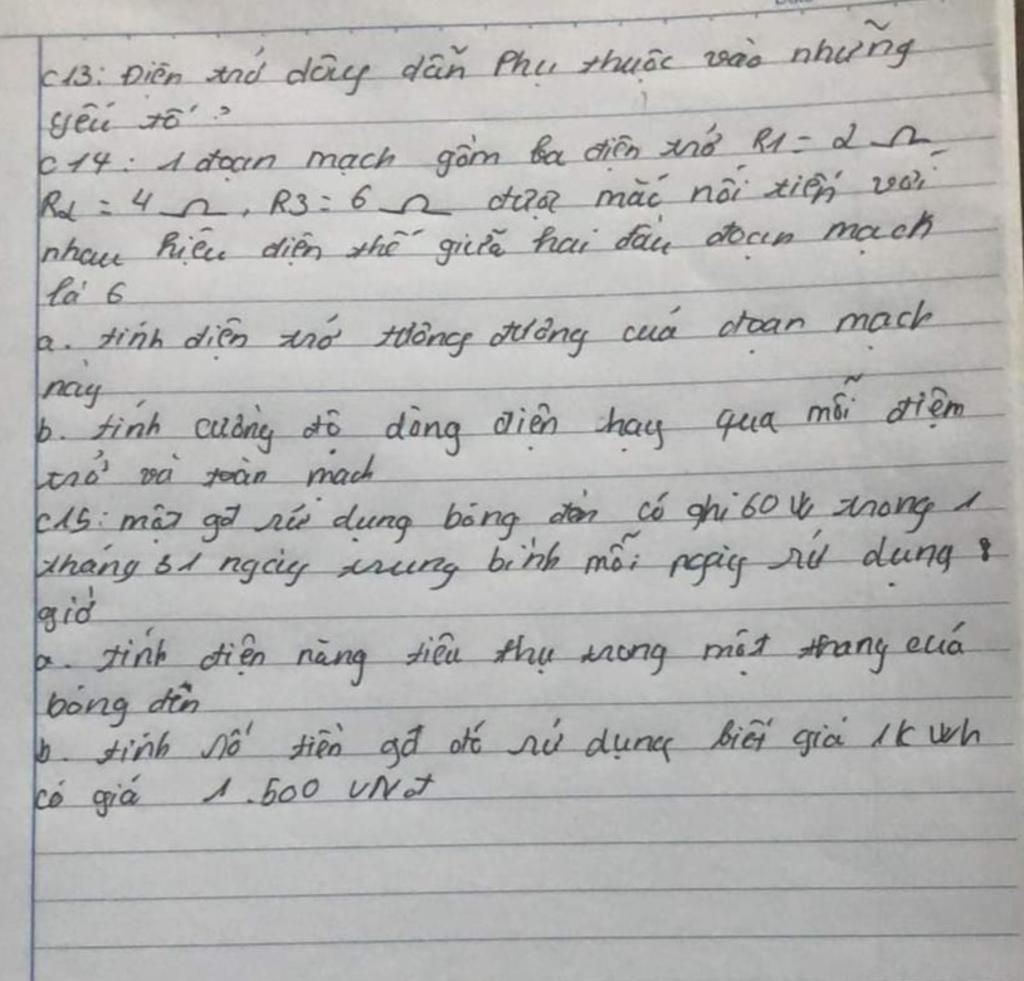 C13: Điện trở dây dẫn Phụ thuộc vào những
yếu tố?
C14: 1 đoạn mạch gồm ba điện trở R1 = 2 Ω
R2 = 4 Ω, R3 = 6 Ω được mắc nối tiếp với
nhau hiệu điện thế giữa hai đầu đoạn mạch
là 6
a. tính điện trở tương đương của đoạn mạch
này
b. tính cường độ dòng điện chạy qua mỗi điệm
trở và toàn mạch
C15: một gđ sử dụng bóng đèn có ghi 60 W trong 1
tháng 31 ngày trung bình mỗi ngày sử dụng 8
giờ
a. tính điện năng tiêu thụ trong một thang của
bóng đèn
b. tính số tiền gđ đó sử dụng biết giá 1K wh
có giá 1.500 VNđ